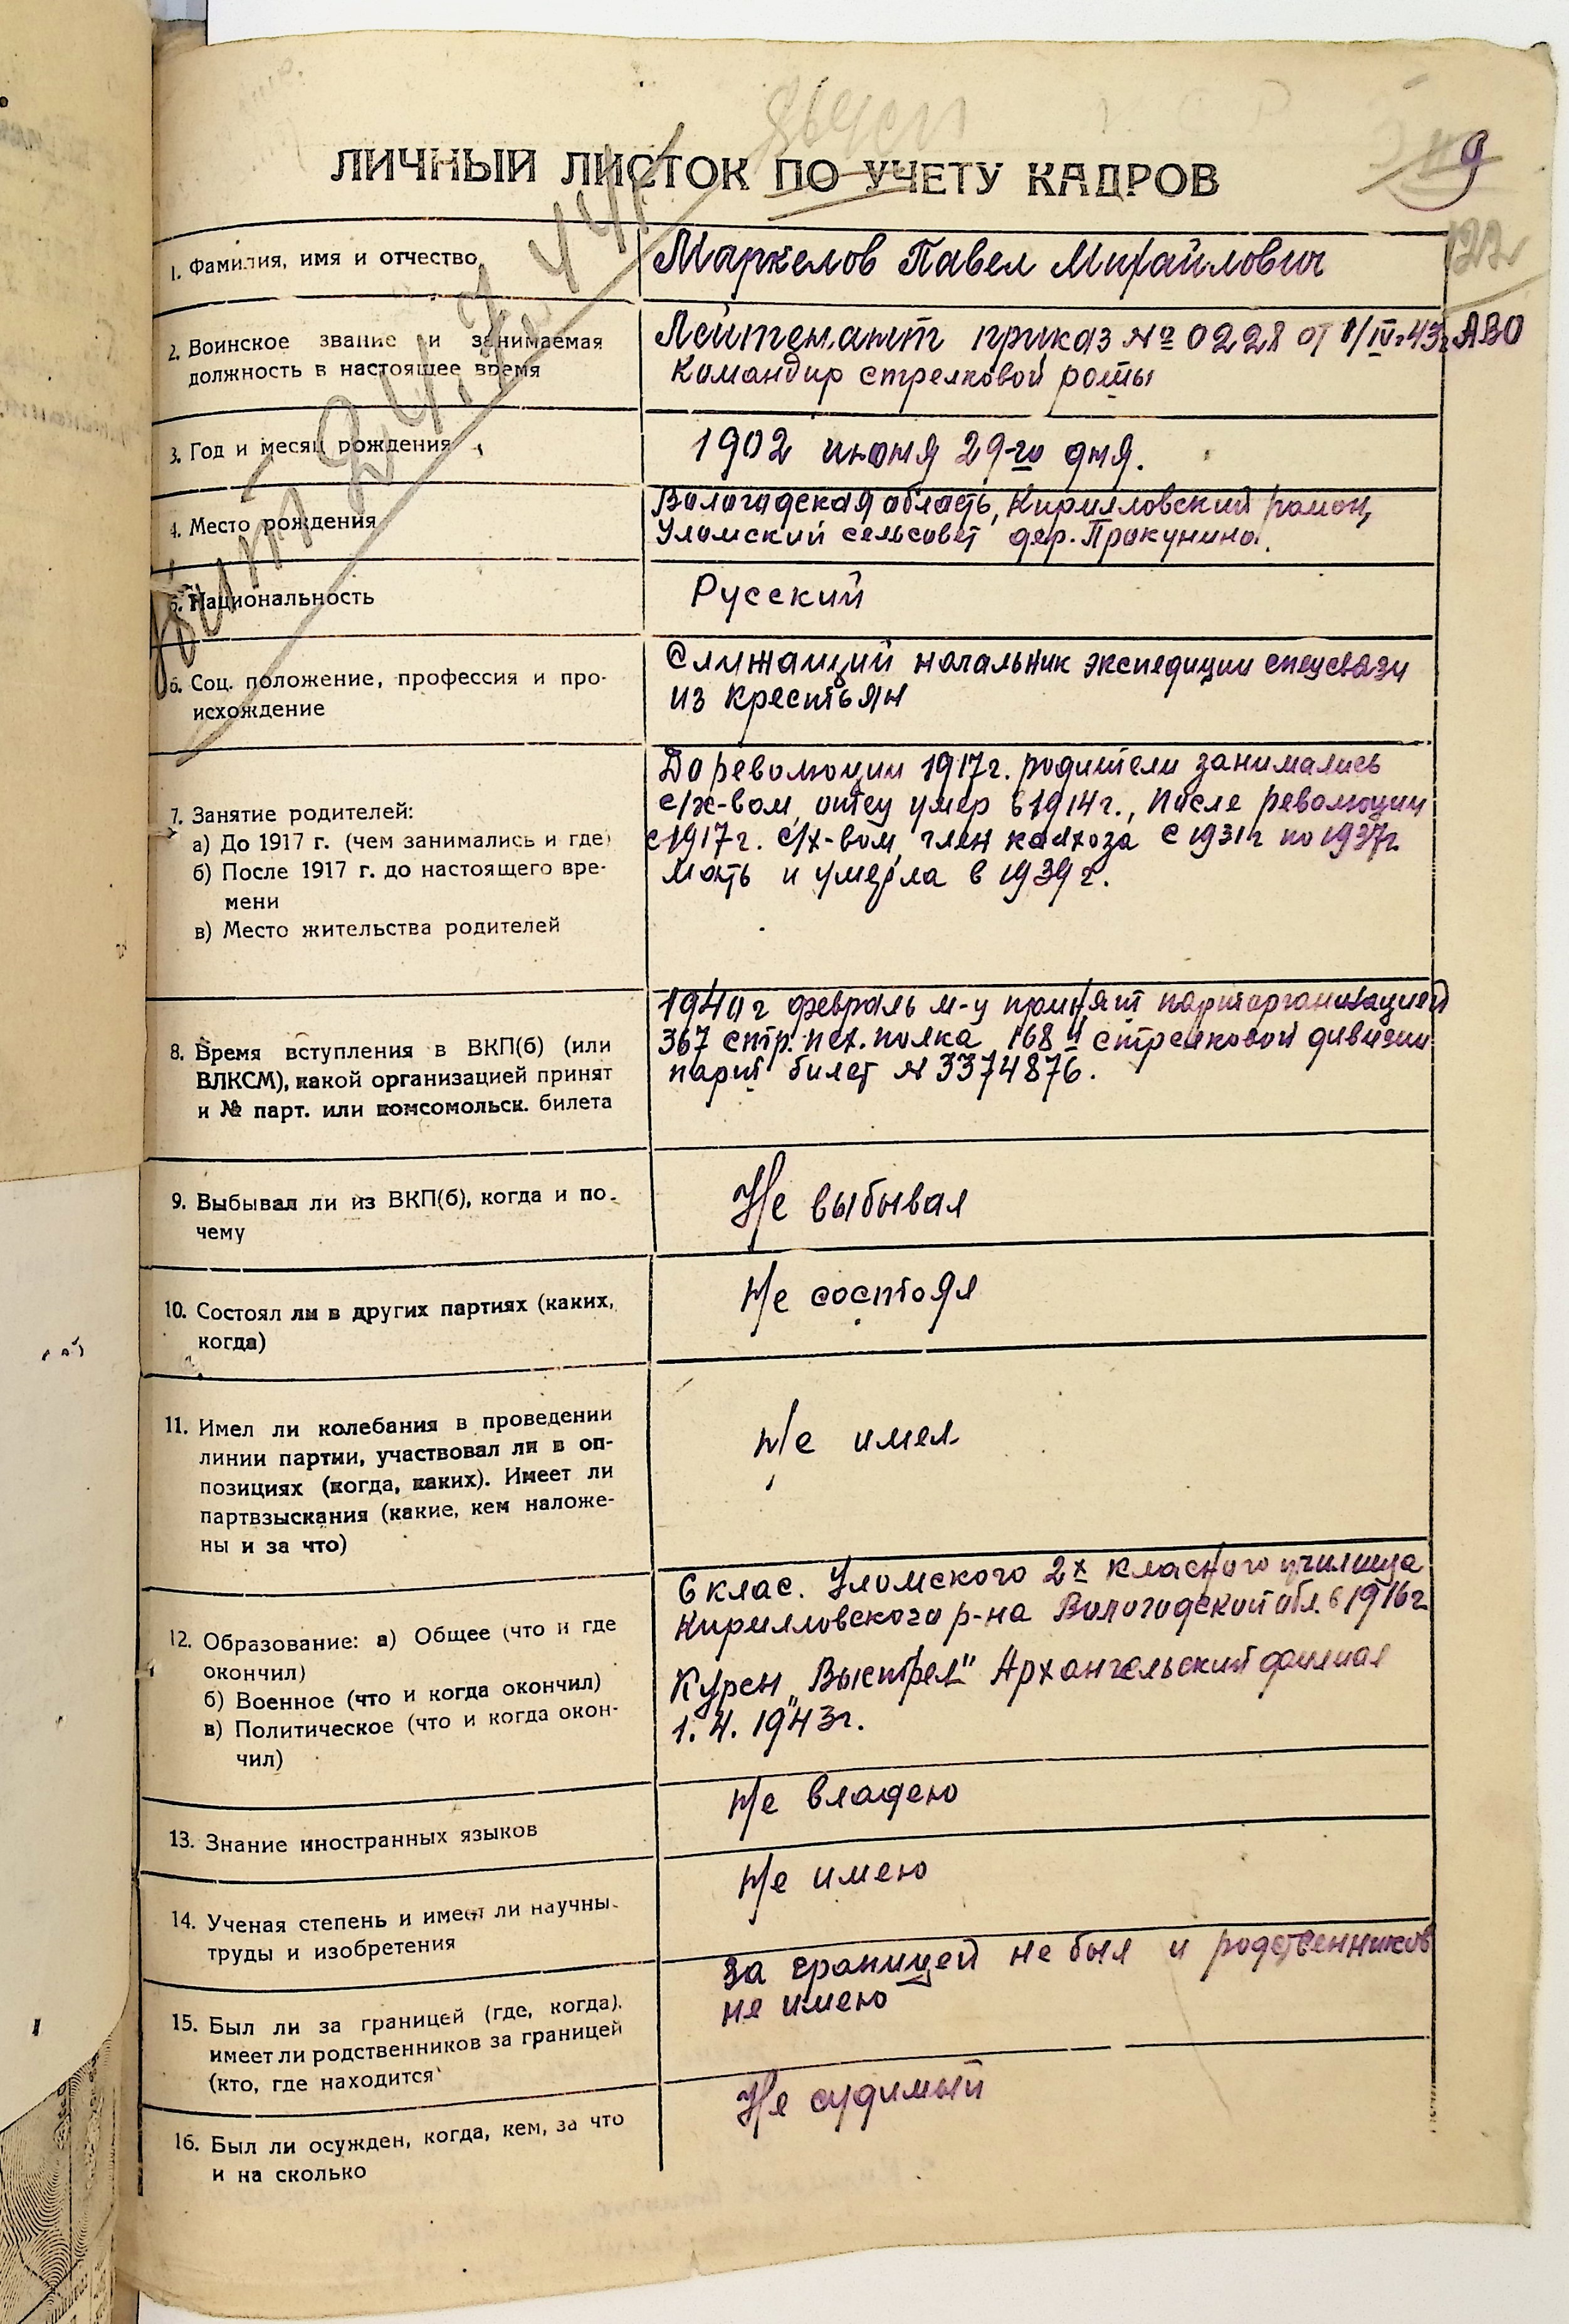 ЛИЧНЫЙ ЛИСТОК ПО УЧЕТУ КАДРОВ
9
122
убит 24.7.44г
1. Фамилия, имя и отчество
Маркелов Павел Михайлович
2. Воинское звание и занимаемая
должность в настоящее время
Лейтенант приказ № 0228 от 1/IV-43г. АВО
Командир стрелковой роты
3. Год и месяц рождения
1902 июня 29-го дня.
4. Место рождения
Вологодская область, Кирилловский район,
Уломский сельсовет дер. Прокунино.
5. Национальность
Русский
6. Соц. положение, профессия и про-
исхождение
Служащий начальник экспедиции спецсвязи
из крестьян
7. Занятие родителей:
а) До 1917 г. (чем занимались и где)
б) После 1917 г. до настоящего вре-
мени
в) Место жительства родителей
До революции 1917г. родители занимались
с/х-вом, отец умер в 1914г., После революции
с 1917г. с/х-вом, член колхоза с 1931г по 1937г.
мать и умерла в 1939г.
8. Время вступления в ВКП(б) (или
ВЛКСМ), какой организацией принят
и № парт. или комсомольск. билета
1940г февраль м-ц принят парторганизацией
367 стр. пех. полка 168й стрелковой дивизии
парт билет № 3374876.
9. Выбывал ли из ВКП(б), когда и по-
чему
Не выбывал
10. Состоял ли в других партиях (каких,
когда)
Не состоял
11. Имел ли колебания в проведении
линии партии, участвовал ли в оп-
позициях (когда, каких). Имеет ли
партвзыскания (какие, кем наложе-
ны и за что)
Не имел
12. Образование: а) Общее (что и где
окончил)
б) Военное (что и когда окончил)
в) Политическое (что и когда окон-
чил)
6 клас. Уломского 2х класного училища
Кирилловского р-на Вологодской обл. в 1916г
Курсы „Выстрел" Архангельский филиал
1.4.1943г.
13. Знание иностранных языков
Не владею
14. Ученая степень и имеет ли научны.
труды и изобретения
Не имею
15. Был ли за границей (где, когда).
имеет ли родственников за границей
(кто, где находится
за границей не был и родственников
не имею
16. Был ли осужден, когда, кем, за что
и на сколько
Не судимый